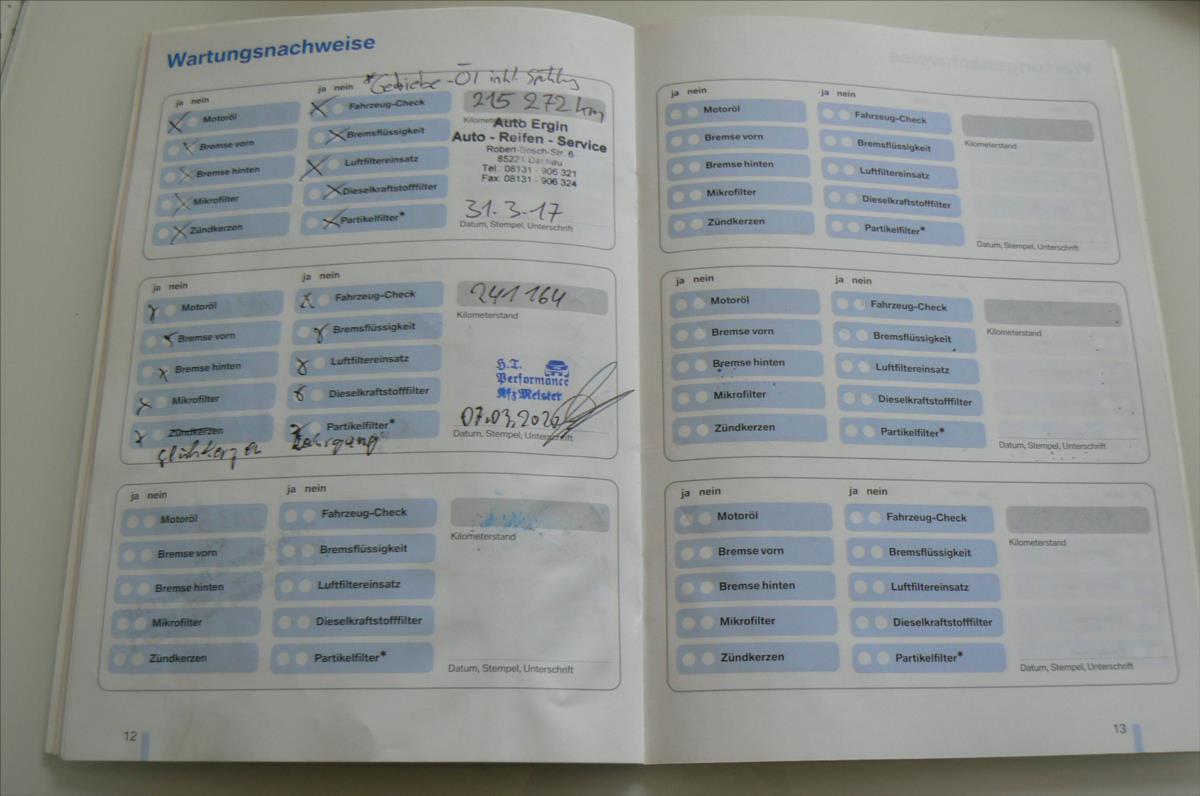 Wartungsnachweise
*Getriebe-Öl inkl. Spülung
ja nein
ja nein
Motoröl
Bremse vorn
Bremse hinten
Mikrofilter
Zündkerzen
Fahrzeug-Check
Bremsflüssigkeit
Luftfiltereinsatz
Dieselkraftstofffilter
Partikelfilter*
215 272 km
Auto Ergin
Auto - Reifen - Service
Robert-Bosch-Str. 6
85221 Dachau
Tel.: 08131 - 906 321
Fax: 08131 - 906 324
31.3-17
Datum, Stempel, Unterschrift
ja nein
ja nein
Motoröl
Bremse vorn
Bremse hinten
Mikrofilter
Zündkerzen
Glühkerzen
Fahrzeug-Check
Bremsflüssigkeit
Luftfiltereinsatz
Dieselkraftstofffilter
Partikelfilter*
241 164
Kilometerstand
H.T.
Performance
Kfz Meister
07.03.2020
Datum, Stempel, Unterschrift
ja nein
ja nein
Motoröl
Bremse vorn
Bremse hinten
Mikrofilter
Zündkerzen
Fahrzeug-Check
Bremsflüssigkeit
Luftfiltereinsatz
Dieselkraftstofffilter
Partikelfilter*
Kilometerstand
Datum, Stempel, Unterschrift
12
ja nein
ja nein
Motoröl
Bremse vorn
Bremse hinten
Mikrofilter
Zündkerzen
Fahrzeug-Check
Bremsflüssigkeit
Luftfiltereinsatz
Dieselkraftstofffilter
Partikelfilter*
Kilometerstand
Datum, Stempel, Unterschrift
ja nein
ja nein
Motoröl
Bremse vorn
Bremse hinten
Mikrofilter
Zündkerzen
Fahrzeug-Check
Bremsflüssigkeit
Luftfiltereinsatz
Dieselkraftstofffilter
Partikelfilter*
Kilometerstand
Datum, Stempel, Unterschrift
ja nein
ja nein
Motoröl
Bremse vorn
Bremse hinten
Mikrofilter
Zündkerzen
Fahrzeug-Check
Bremsflüssigkeit
Luftfiltereinsatz
Dieselkraftstofffilter
Partikelfilter*
Kilometerstand
Datum, Stempel, Unterschrift
13